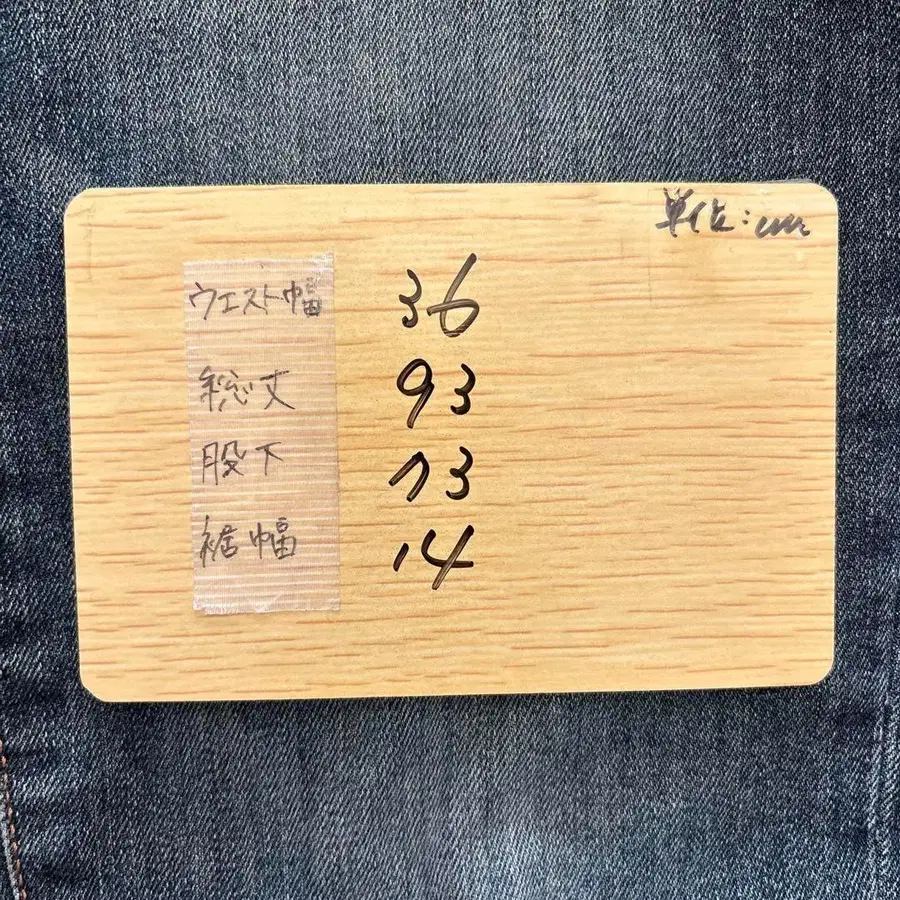 単位:cm
ウエスト幅 36
総丈 93
股下 73
裾幅 14